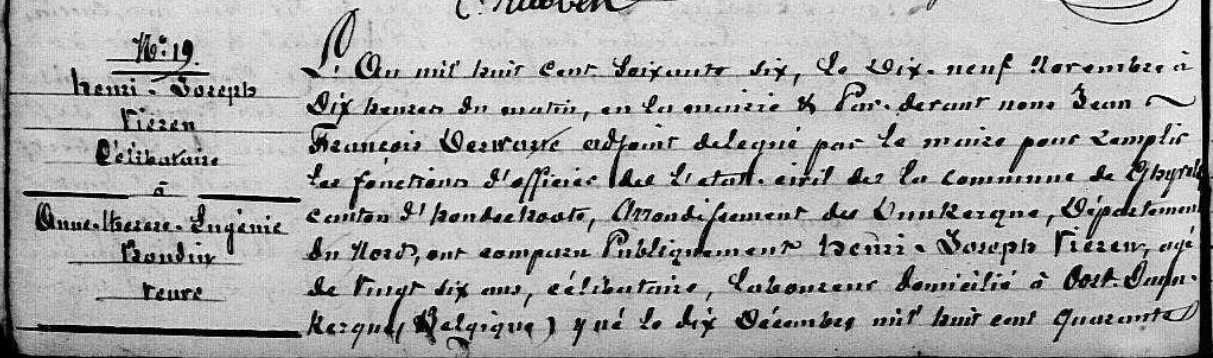 N° 19.
henri-Joseph
Vieren
Célibataire
à
Anne-therese-Eugénie
veuve
L'An mil huit cent Soixante six, le Dix-neuf Novembre à
Dix heures du matin, en la mairie & Par-devant nous Jean
François adjoint delegué par le maire pour remplir
les fonctions d'officier de L'etat-civil de la commune de Ghyvelde
canton d'hondschoote, Arrondissement de Dunkerque, Département
du Nord, ont comparu Publiquement henri-Joseph Vieren, agé
de Vingt six ans, célibataire, laboureur domicilié à Oost-Duyn-
Kerque (Belgique) y né le dix Décembre mil huit cent quarante